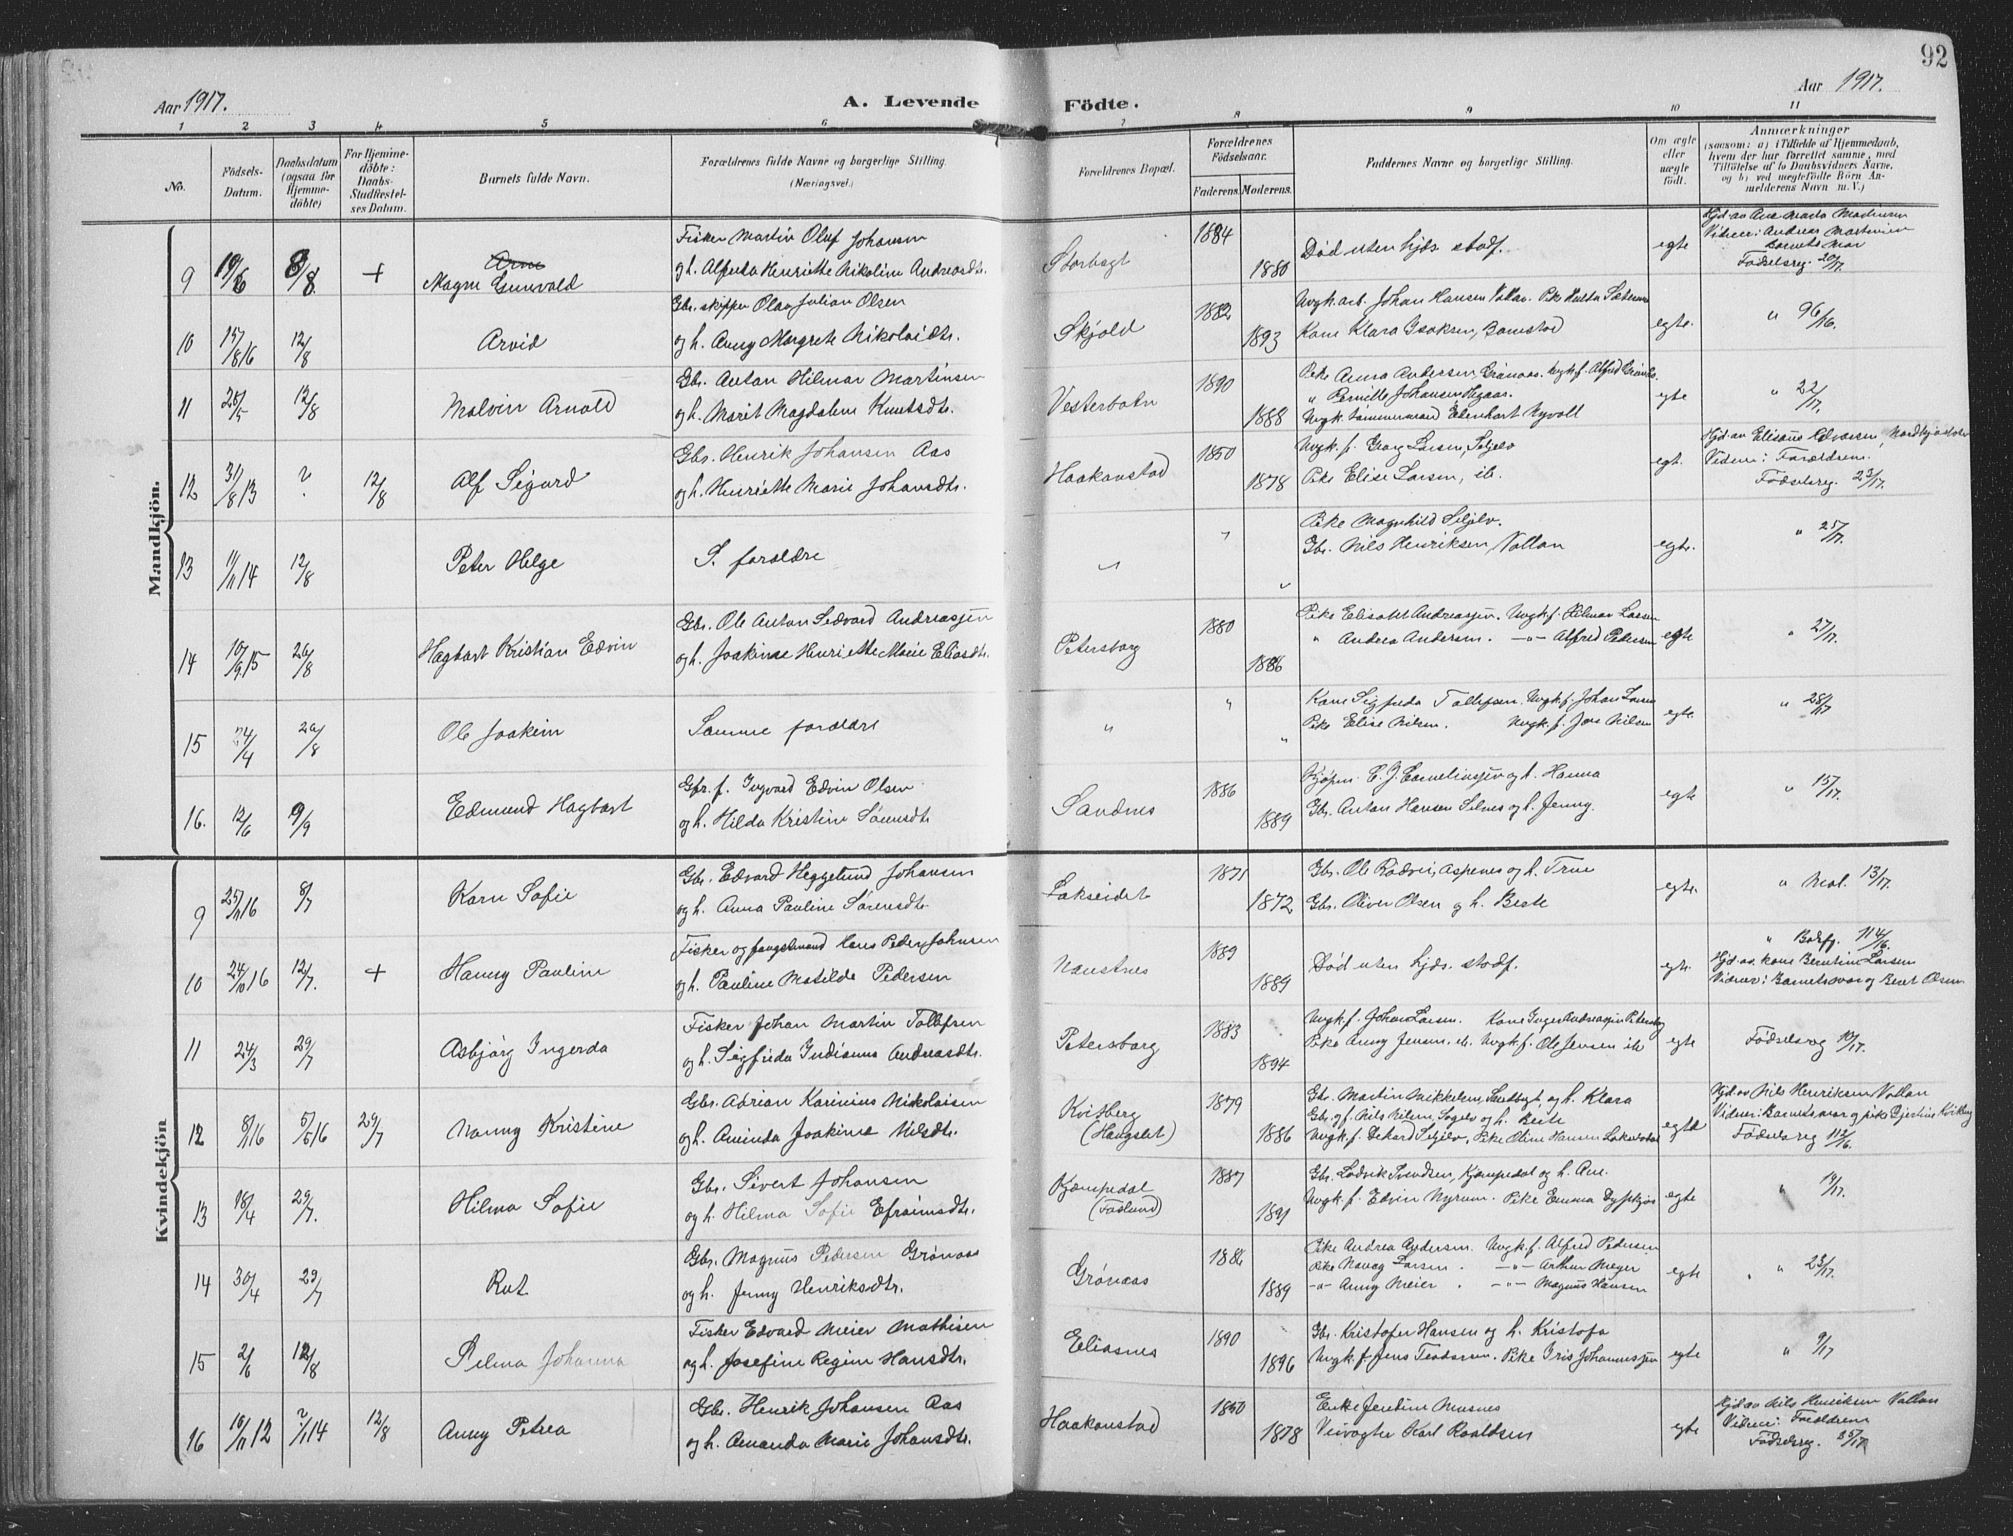 92
Aar 1917.
A. Levende
Födte.
Aar 1917.
1 2 3 4 5 6 7 8 9 10 11
No.
Födsels-Datum.
Daabsdatum (ogsaa for Hjemme-döbte)
For Hjemme-döbte: Daabs-Stadfæstel-ses Datum.
Barnets fulde Navn.
Forældrenes fulde Navne og borgerlige Stilling. (Næringsvei.)
Forældrenes Bopæl.
Forældrenes Födselsaar.
Faderens. Moderens.
Faddernes Navne og borgerlige Stilling.
Om ægte eller uægte födt.
Anmærkninger
(saasom: a) i Tilfælde af Hjemmedaab, hvem der har forrettet samme, med Tilföielse af to Daabsvidners Navne, og b) ved uægtefödte Börn An-melderens Navn m. V.)
Mandkjön.
9 19/6 8/8 + Magne Gunvald
Fisker Martin Oluf Johansen
og h. Alfreda Henriette Nikoline Andreasdtr.
Storbogt 1884 1880 Død uten hjds. stadf. egte
Vidner: Andreas Martinsen
Barnets Mor
Fødselsreg. 20/17.
10 15/8 16 12/8 Arvid
Gbr. skipper Olav Julian Olsen
og h. Anny Margrete Nikolaidtr.
Skjold 1882 1893
Kone Klara Isaksen, Bomstad egte. " 96/16.
11 25/5 12/8 Malvin Arnold
Gbr. Anton Hilmar Martinsen
og h. Marit Magdalene Knutsdtr.
Vesterbotn 1890 1888
Pike Anna Andersen Grønaas. Ungk. f. Alfred Grønaas
" Pernille Johansen
Ungk. tømmermand Edenhart Nyvoll egte " 22/17.
12 31/8 13 ? 12/8 Alf Sigurd
Gbr. Henrik Johansen Aas
og h. Henriette Marie Johansdtr.
Haakonstad 1850 1878
Ungk. f. Georg Larsen, Seljelv
Pike Elise Larsen, ib. egt.
Vidner: Forældrene.
Fødselsreg. 23/17.
13 11/11 14 12/8 Peter Helge
S. forældre
" " "
Pike Magnhild Seljelv.
Gbr. Nils Henriksen, Vollan egte. " 25/17.
14 10/9 15 26/8 Hagbart Kristian Edvin
Gbr. Ole Anton Sedvard Andreassen
og h. Joakime Henriette Marie Eliasdtr.
Petersborg 1880 1886
Pike Elisabet Andreassen. Ungk. f. Hilmar Larsen
" Andrea Andersen. —"— Alfred Pedersen egte " 27/17.
15 24/4 26/8 Ole Joakim
Samme forældre
" " "
Kone Sigfrida Tollefsen. Ungk. f. Johan Larsen
Pike Elise Nilsen. Ungk. f. Jens Nilsen egte " 28/17
16. 12/6 9/9 Edmund Hagbart
Gbr. f. Ingvard Edvin Olsen
og h. Hilda Kristine
Sandnes 1886 1889
Kjøpm. E. J. Corneliussen og h. Hanna
Gbr. Anton Hansen Selnes og h. Jenny. egte " 15/17.
Kvindekjön
9 25/11 16 8/7 Karn Sofie
Gbr. Edvard Heggelund Johansen
og h. Anna Pauline Sørensdtr.
Lakseidet 1871 1872
Gbr. Ole Rødvei, Aspenes og h. Trine
Gbr. Oliver Olsen og h. Berte egte. " Mal. 13/17.
10 24/10 16 12/7. + Hanny Pauline
Fisker og fangstmand Hans Peder Johnsen
og h. Pauline Matilde Pedersen
Naustnes 1889 1889 Død uten hjds. stadf. egte.
" Balsfj. 114/16.
Hjd. av kone Berntine Larsen
Vidner: Barnets mor og Beret Olsen
11 24/3 29/7 Asbjørg Ingerda
Fisker Johan Martin Tollefsen
og h. Sigfrida Indianna Andreasdtr.
Petersborg 1883 1894
Ungk. f. Johan Larsen. Kone Inger Andreassen Petersborg
Pike Anny Jensen, ib. Ungk. f. Ole Jensen ib egte Fødselsreg 10/17.
12 8/1 16 5/5 16 29/7 Nanny Kristine
Gbr. Adrian Karinius Nikolaisen
og h. Aminda Joakime Nilsdtr.
Kvitberg
(Haugslet) 1879 1886
Gbr. Martin Mikkelsen, Sandbugt, og h. Klara
Gbr. og f. Nils Nilsen, Sagelv og h. Berte
Ungk. f. Dehard Seljelv, Pike Oline Hansen Lakselvdal egte
Hjd. av Nils Henriksen Vollan
Vidner: Barnets mor og pike Gjertine Kvitberg
Fødselsreg 112/16.
13 18/4 29/7. Hilma Sofie
Gbr. Sivert Johansen
og h. Hilma Sofie Efraimsdtr.
Kjempedal
(Fagerlund) 1887 1891
Gbr. Lodvik Svendsen, Kjempedal og h. Ane.
Ungk. f. Edvin Nyrum. Pike Emma Dypfjos egte " 19/17.
14 30/4 29/7 Rut
Gbr. Magnus Pedersen Grønaas
og h. Jenny Henriksdtr.
Grønaas 1886 1889
Pike Andrea Andersen. Ungk. f. Alfred Pedersen
Pike Larsen. —"— Arthur Meyer
—"— Anny Meier. —"— Magnus Hansen egte " 23/17.
15 2/6 12/8 Selma Johanna
Fisker Edvard Meier Mathisen
og h. Josefine Regine Hansdtr.
Eliasnes 1890 1896
Gbr. Kristofer Hansen og h. Kristofa
Ungk. f. Jens Teodorsen. Pike Iris Johannessen egte " 9/17
16 16/11 12 ?/1 14 12/8 Anny Petrea
Gbr. Henrik Johansen Aas
og h. Amanda Marie Johansdtr.
Haakonstad 1850 1878
Enke Jentine Masnes
Veivogter Karl Roaldsen egte
Hjd. av Nils Henriksen Vollan
Vidner: Forældrene
Fødselsreg. 35/17